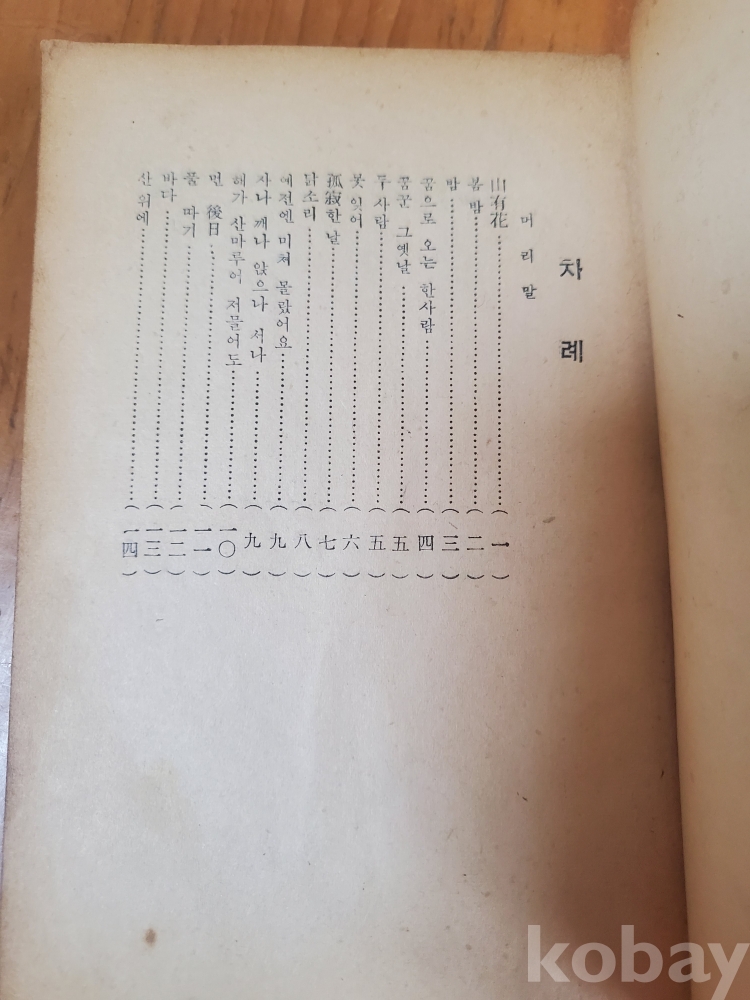 차례
머리말
山有花……(一)
봄 밤……(二)
밤……(三)
꿈으로 오는 한사람……(四)
꿈꾼 그 옛날……(五)
두 사람……(五)
못 잊어……(六)
孤寂한 날……(七)
닭소리……(八)
예전엔 미처 몰랐어요……(九)
자나 깨나 앉으나 서나……(九)
해가 산마루에 저믈어도……(一〇)
먼 後日……(一一)
풀 따기……(一二)
바다……(一三)
산 위에……(一四)
kobay